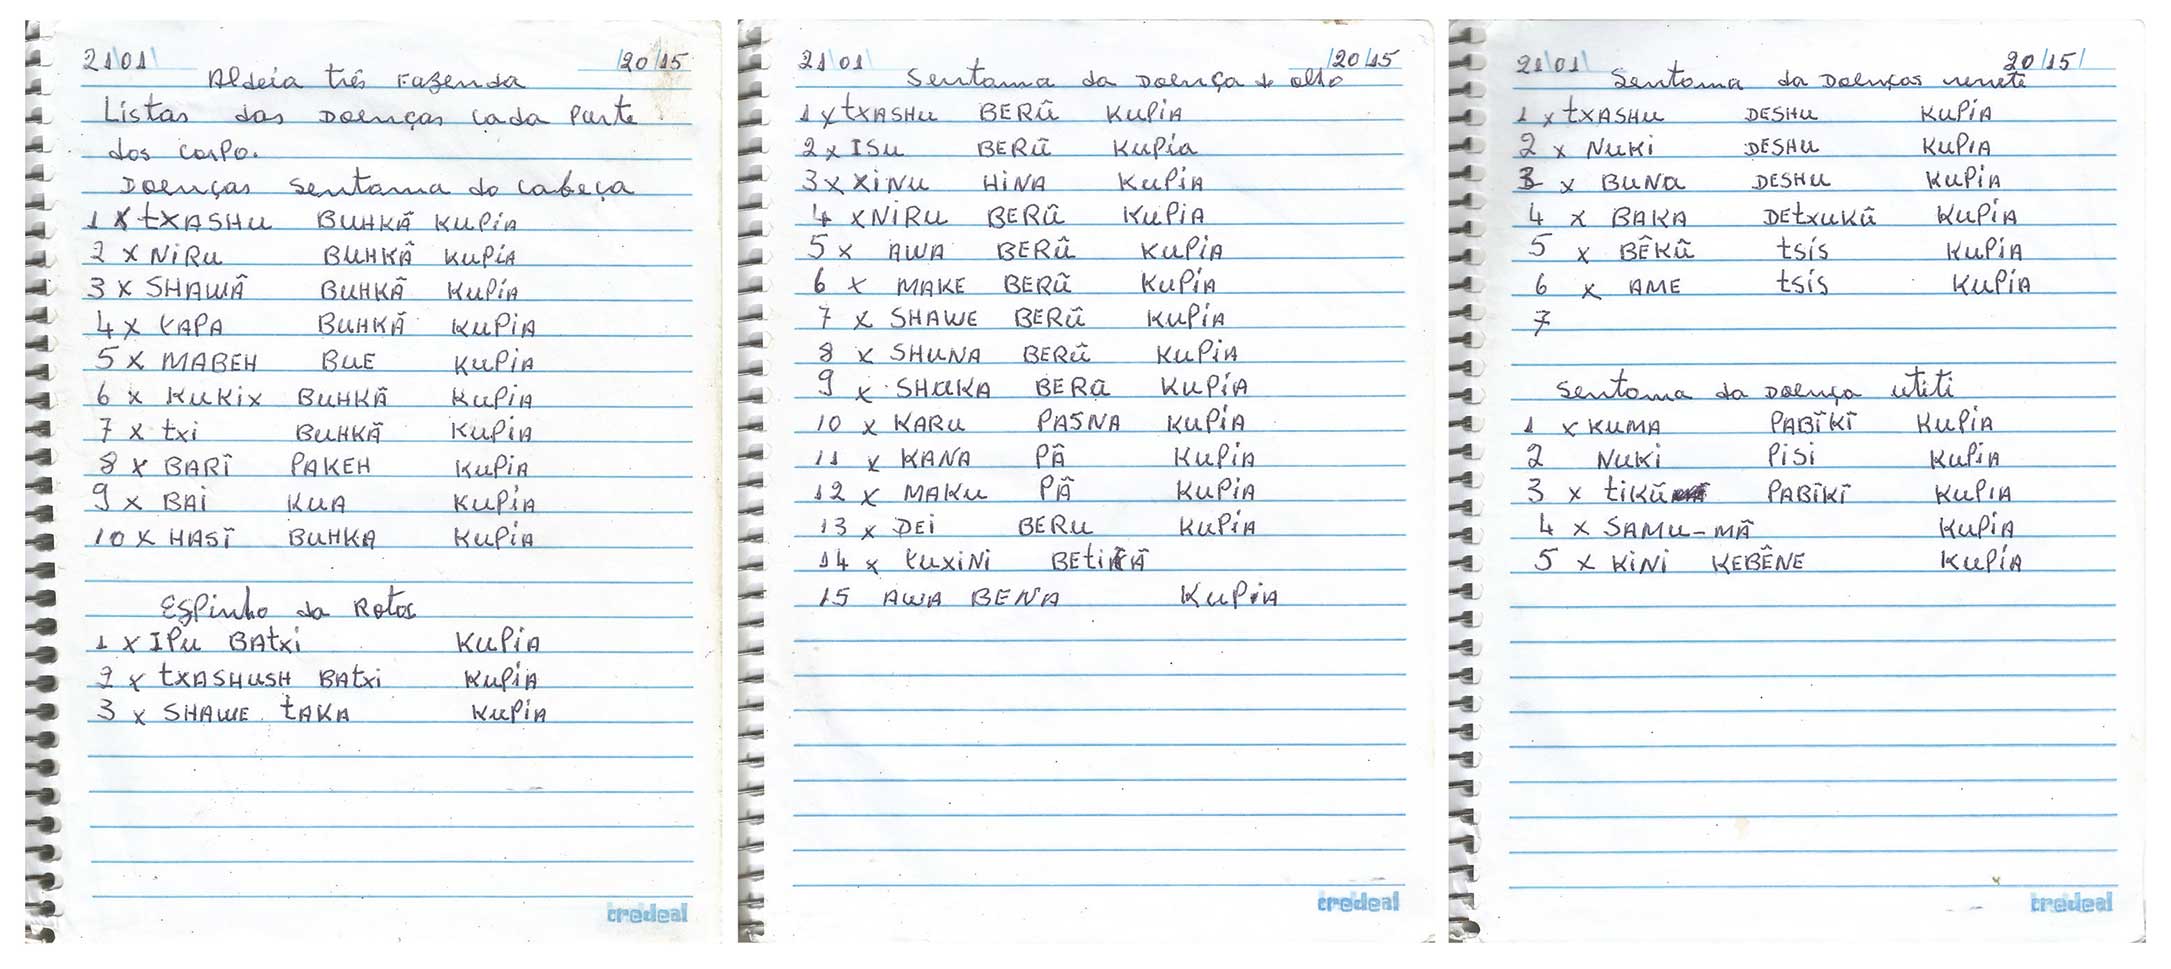 21\01\ /20/15
Aldeia três Fazenda
Listas das Doenças cada Parte
dos corpo.
Doenças sentama do cabeça
1 x txASHu BUHKÃ KuPiA
2 x NiRu BUHKÃ KuPiA
3 x SHAWÃ BUHKÃ KuPiA
4 x tAPA BUHKÃ KuPiA
5 x MABEH BUE KuPiA
6 x KuKix BUHKÃ KuPiA
7 x txi BUHKÃ KuPiA
8 x BARĨ PAKEH KuPiA
9 x BAi KUA KuPiA
10 x HASĨ BUHKA KuPiA
Espinho da Rotos
1 x IPu BAtxi KuPiA
2 x txASHUSH BAtxi KuPiA
3 x SHAWE tAKA KuPiA
credeal
21\01\ /20/15
Sentama da Doença do olho
1 x txASHu BERŨ KuPiA
2 x ISu BERŨ KuPia
3 x XiNu HiNA KuPiA
4 x NiRu BERŨ KuPiA
5 x AWA BERŨ KuPiA
6 x MAKE BERŨ KuPiA
7 x SHAWE BERŨ KuPiA
8 x SHUNA BERŨ KuPiA
9 x SHUKA BERU KuPiA
10 x KARu PASNA KuPiA
11 x KANA PÃ KuPiA
12 x MAKu PÃ KuPiA
13 x DEi BERU KuPiA
14 x tuxiNi
15 AWA BENA KuPiA
credeal
21\01\ 20/15/
Sentoma da Doenças
1 x txASHu DESHU KuPiA
2 x NuKi DESHU KuPiA
3 x BUNa DESHU KuPiA
4 x BAKA DEtxuKŨ KuPiA
5 x BẼKŨ tsis KuPiA
6 x AME tsis KuPiA
7
Sentoma da Doença utiti
1 x KUMA PABĨKĨ KuPiA
2 NuKi PiSi KuPiA
3 x tiKŨ PABĨKĨ KuPiA
4 x SAMU-MÃ KuPiA
5 x KiNi KEBÊNE KuPiA
credeal